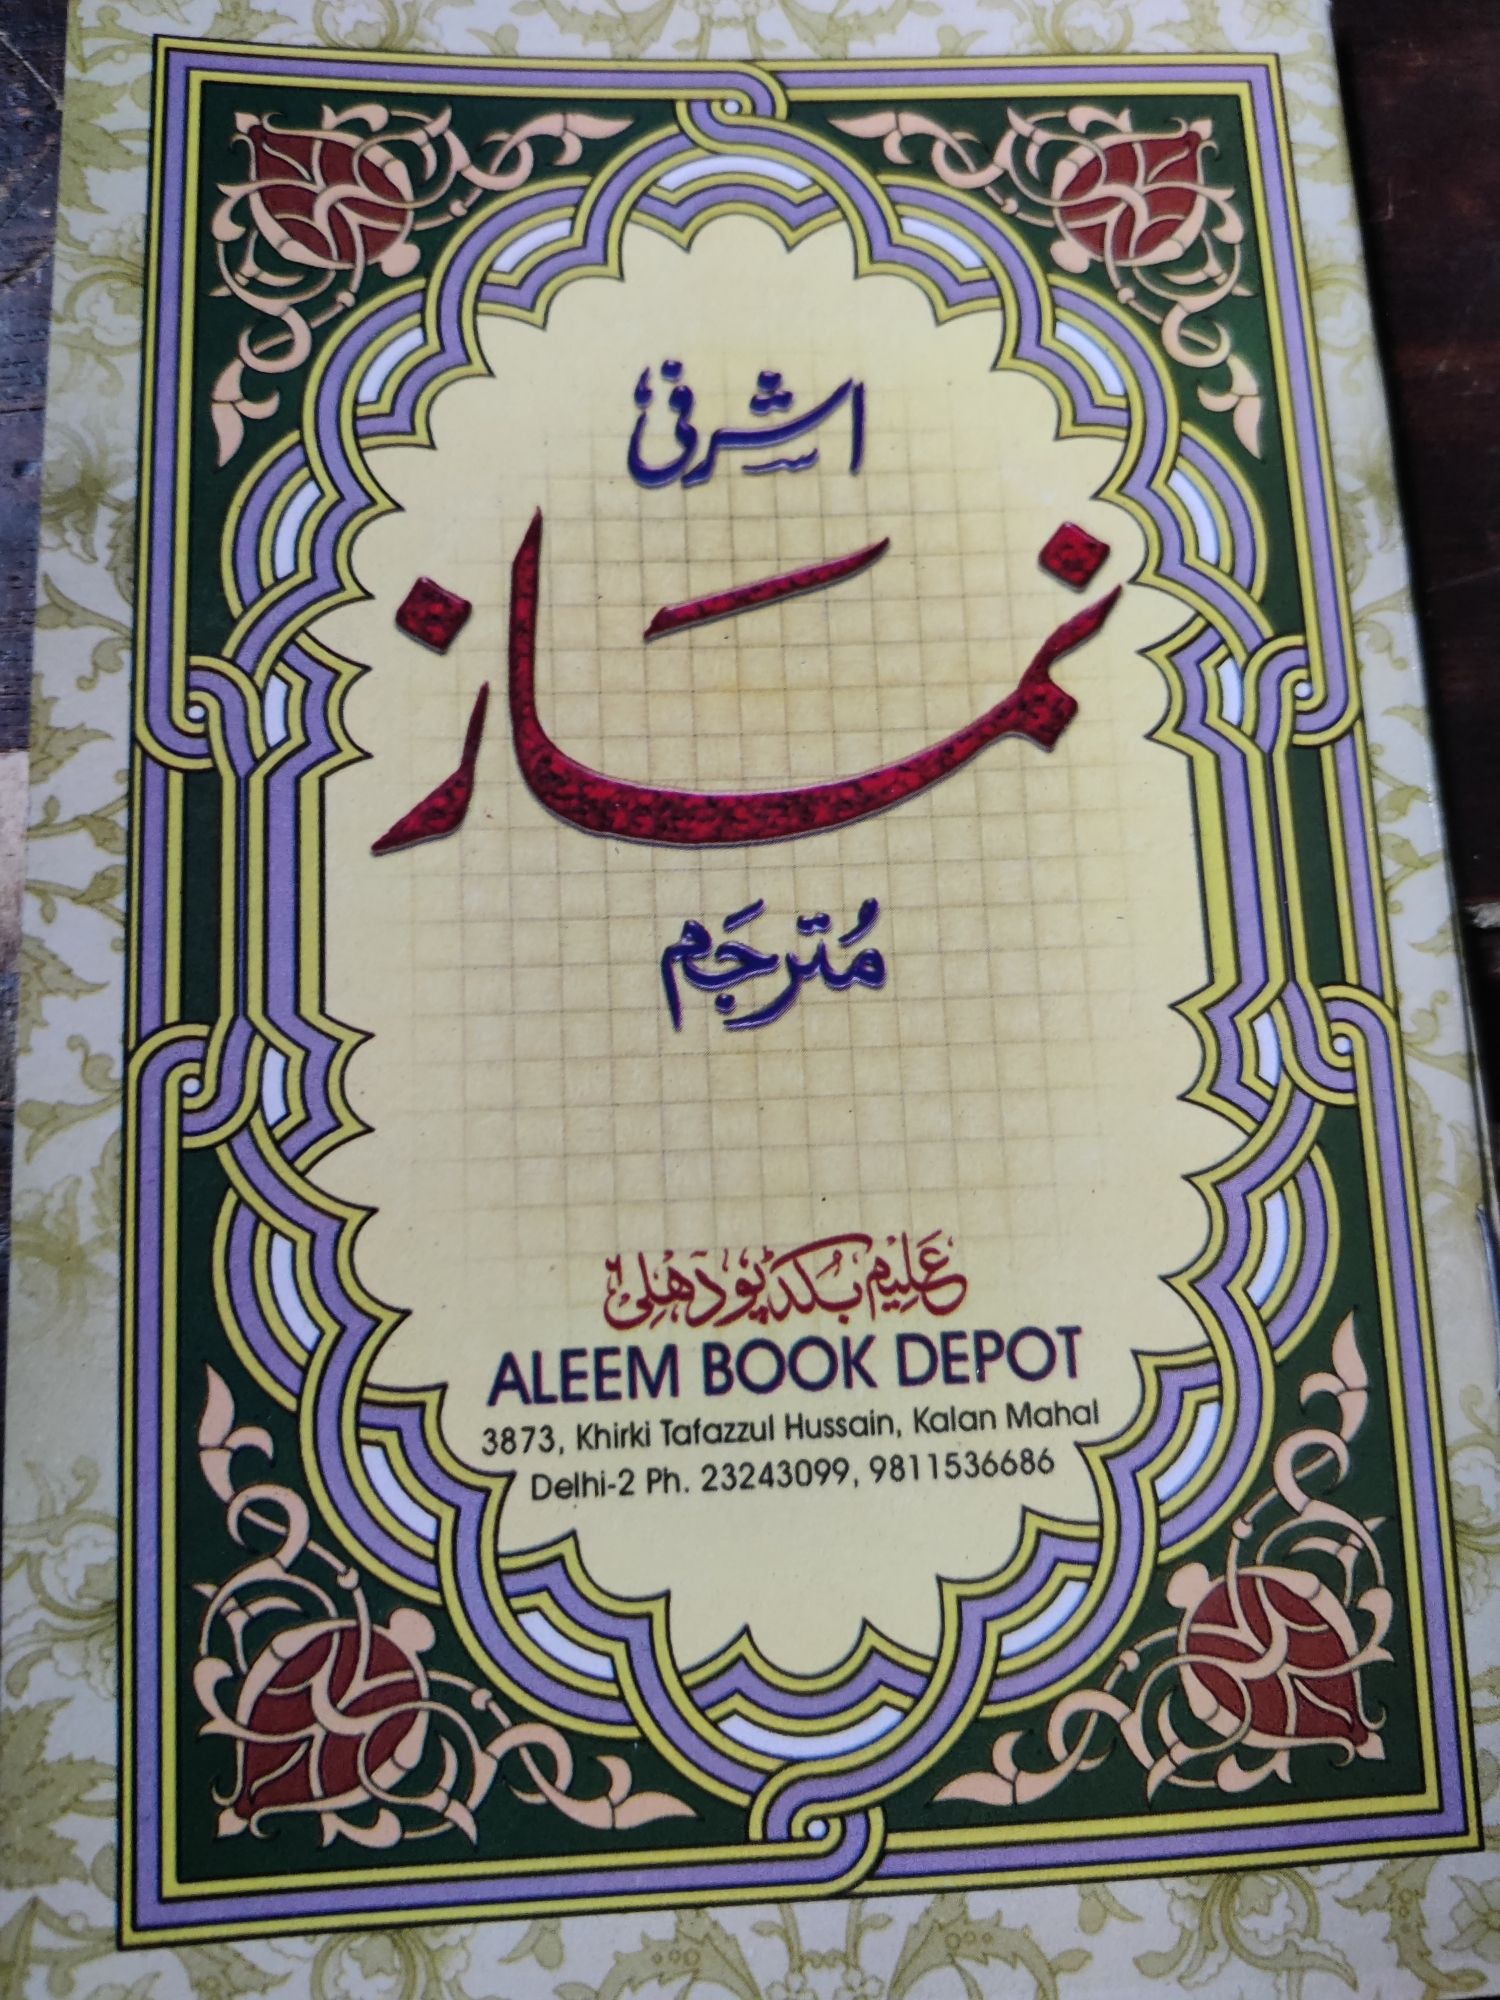 اشرفی
نماز
مُترجَم
عَلِیم بُکڈپو دَهلی
ALEEM BOOK DEPOT
3873, Khirki Tafazzul Hussain, Kalan Mahal
Delhi-2 Ph. 23243099, 9811536686